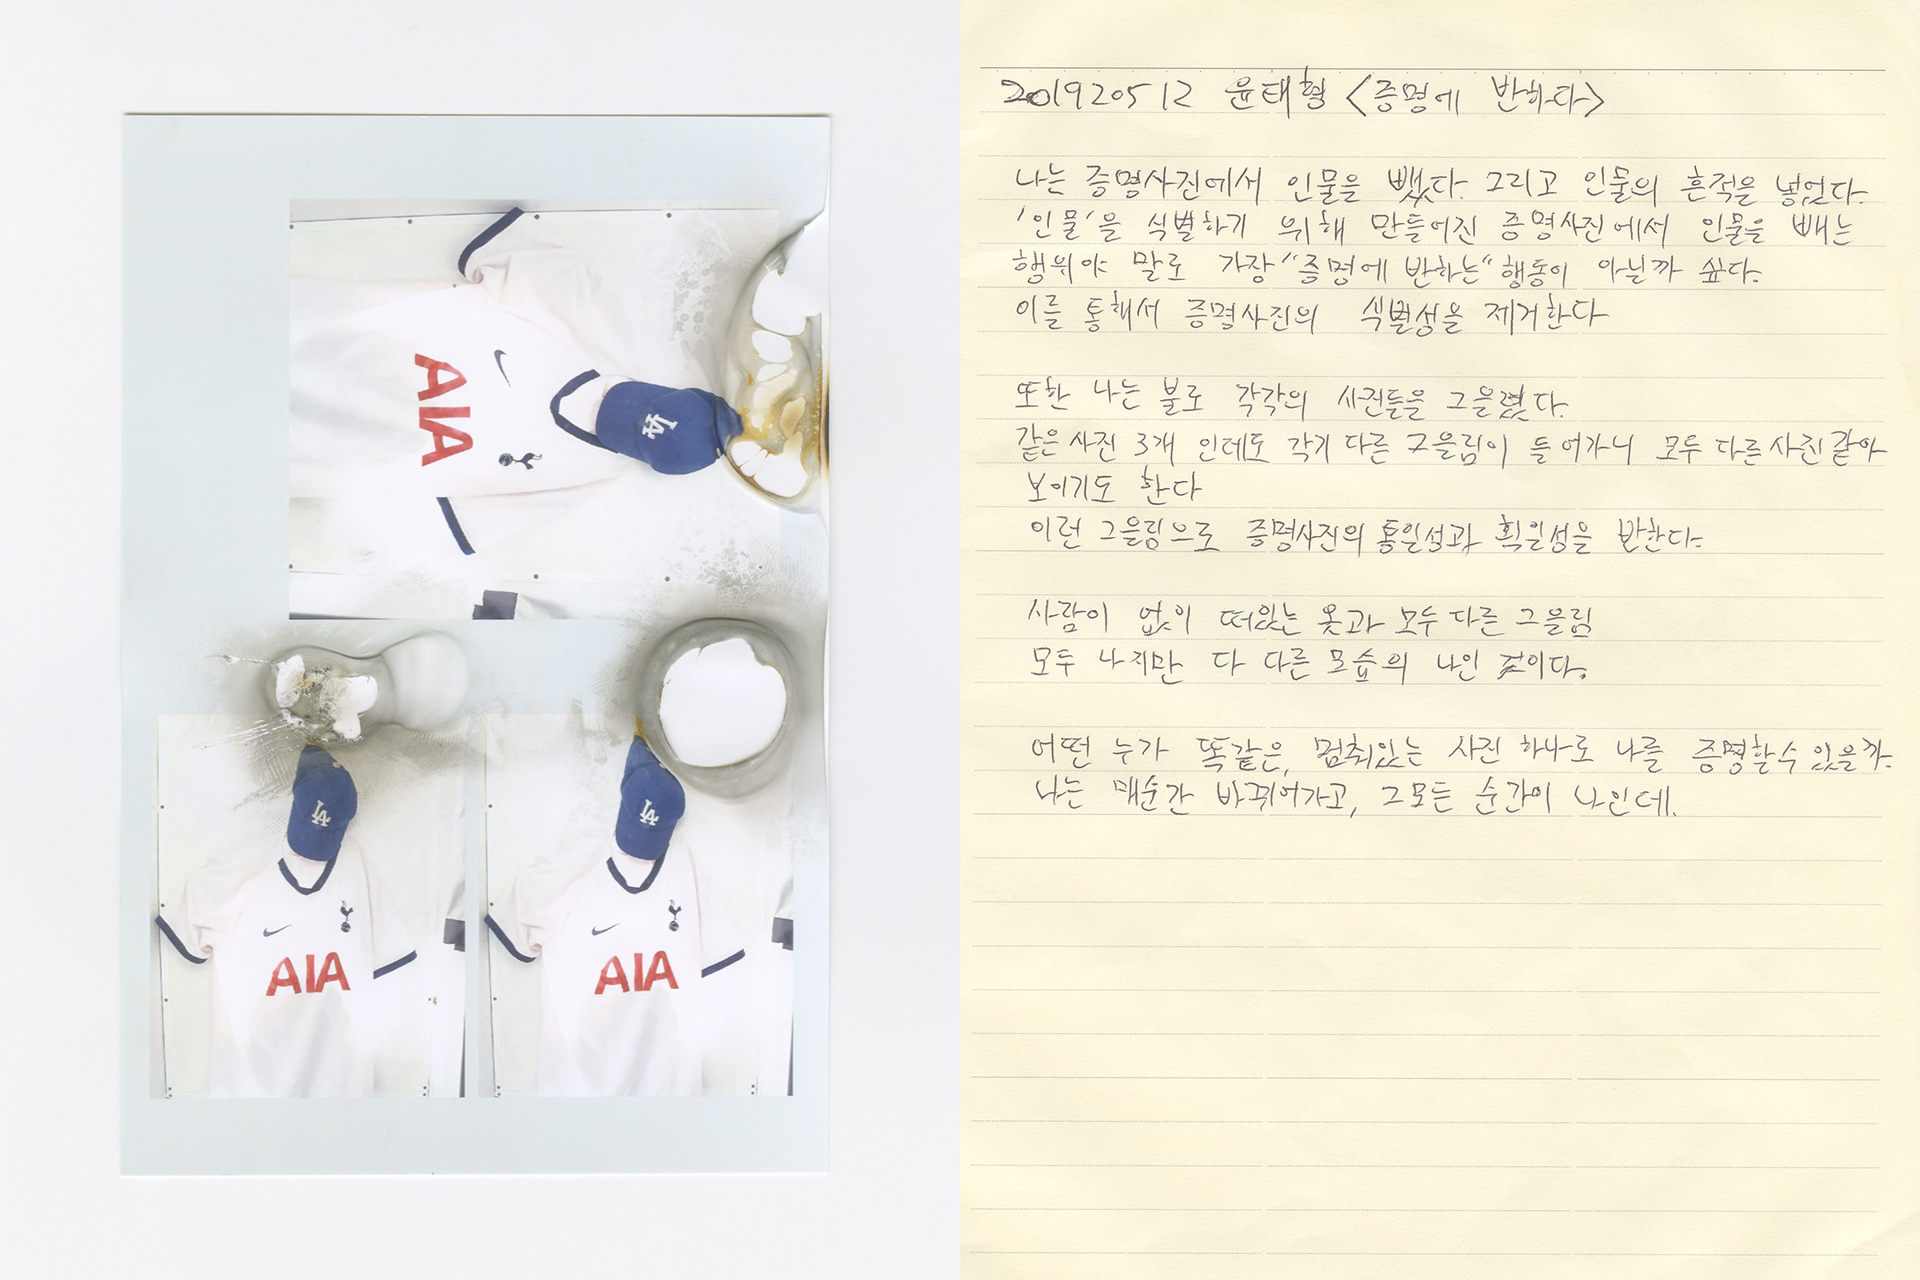 AIA
LA
LA
LA
AIA
AIA
201920512 윤태형 <증명에 반하다>
나는 증명사진에서 인물을 뺐다. 그리고 인물의 흔적을 넣었다.
'인물'을 식별하기 위해 만들어진 증명사진에서 인물을 빼는
행위야 말로 가장 "증명에 반하는" 행동이 아닐까 싶다.
이를 통해서 증명사진의 식별성을 제거한다
또한 나는 불로 각각의 사진들을 그을렸다.
같은 사진 3개 인데도 각기 다른 그을림이 들어가니 모두 다른 사진 같아
보이기도 한다
이런 그을림으로 증명사진의 통일성과 획일성을 반한다.
사람이 없이 떠있는 옷과 모두 다른 그을림
모두 나지만 다 다른 모습의 나인 것이다.
어떤 누가 똑같은, 멈춰있는 사진 하나로 나를 증명할 수 있을까.
나는 매순간 바뀌어가고, 그 모든 순간이 나인데.